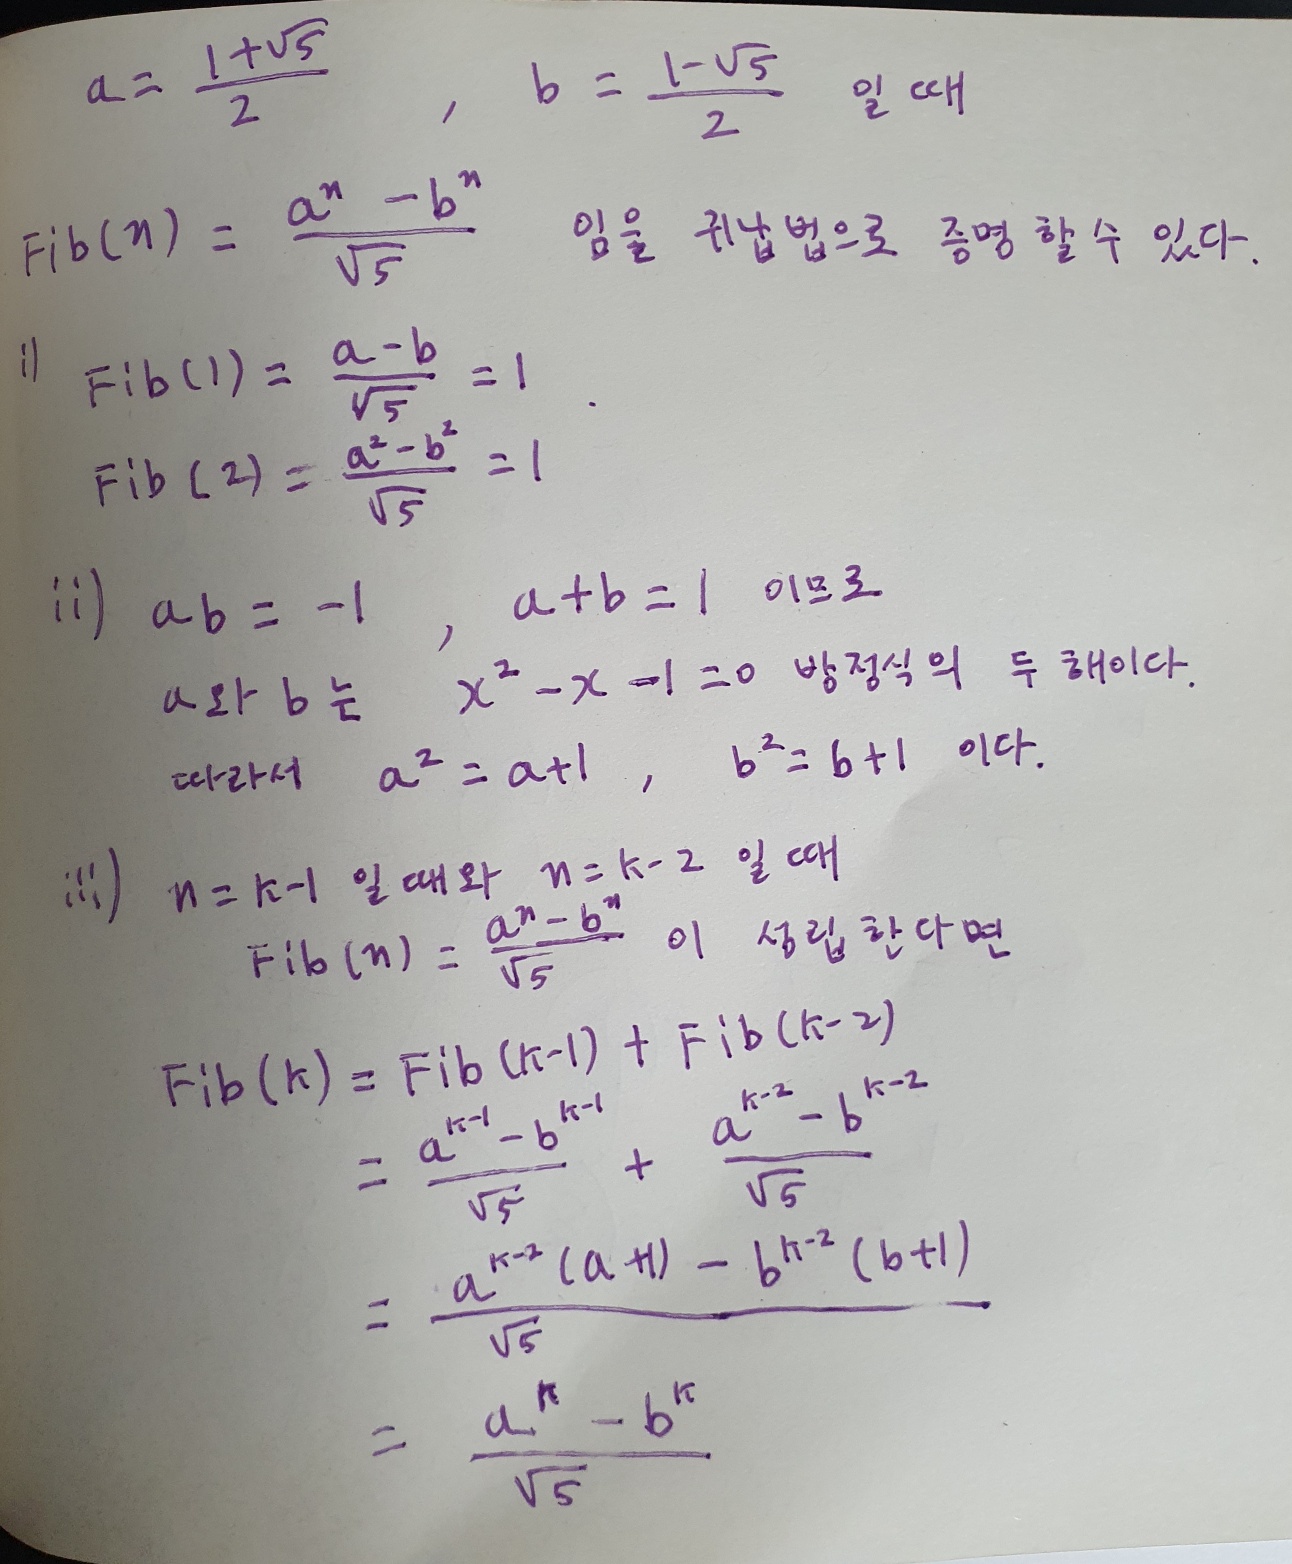 a = (1+√5)/2 , b = (1-√5)/2 일 때
Fib(n) = (aⁿ - bⁿ)/√5 임을 귀납법으로 증명 할 수 있다.
i) Fib(1) = (a-b)/√5 = 1 .
Fib(2) = (a²-b²)/√5 = 1
ii) ab = -1 , a+b = 1 이므로
a와 b는 x² - x - 1 = 0 방정식의 두 해이다.
따라서 a² = a+1 , b² = b+1 이다.
iii) n = k-1 일 때와 n = k-2 일 때
Fib(n) = (aⁿ - bⁿ)/√5 이 성립 한다면
Fib(k) = Fib(k-1) + Fib(k-2)
= (a^(k-1) - b^(k-1))/√5 + (a^(k-2) - b^(k-2))/√5
= (a^(k-2) (a+1) - b^(k-2) (b+1))/√5
= (a^k - b^k)/√5